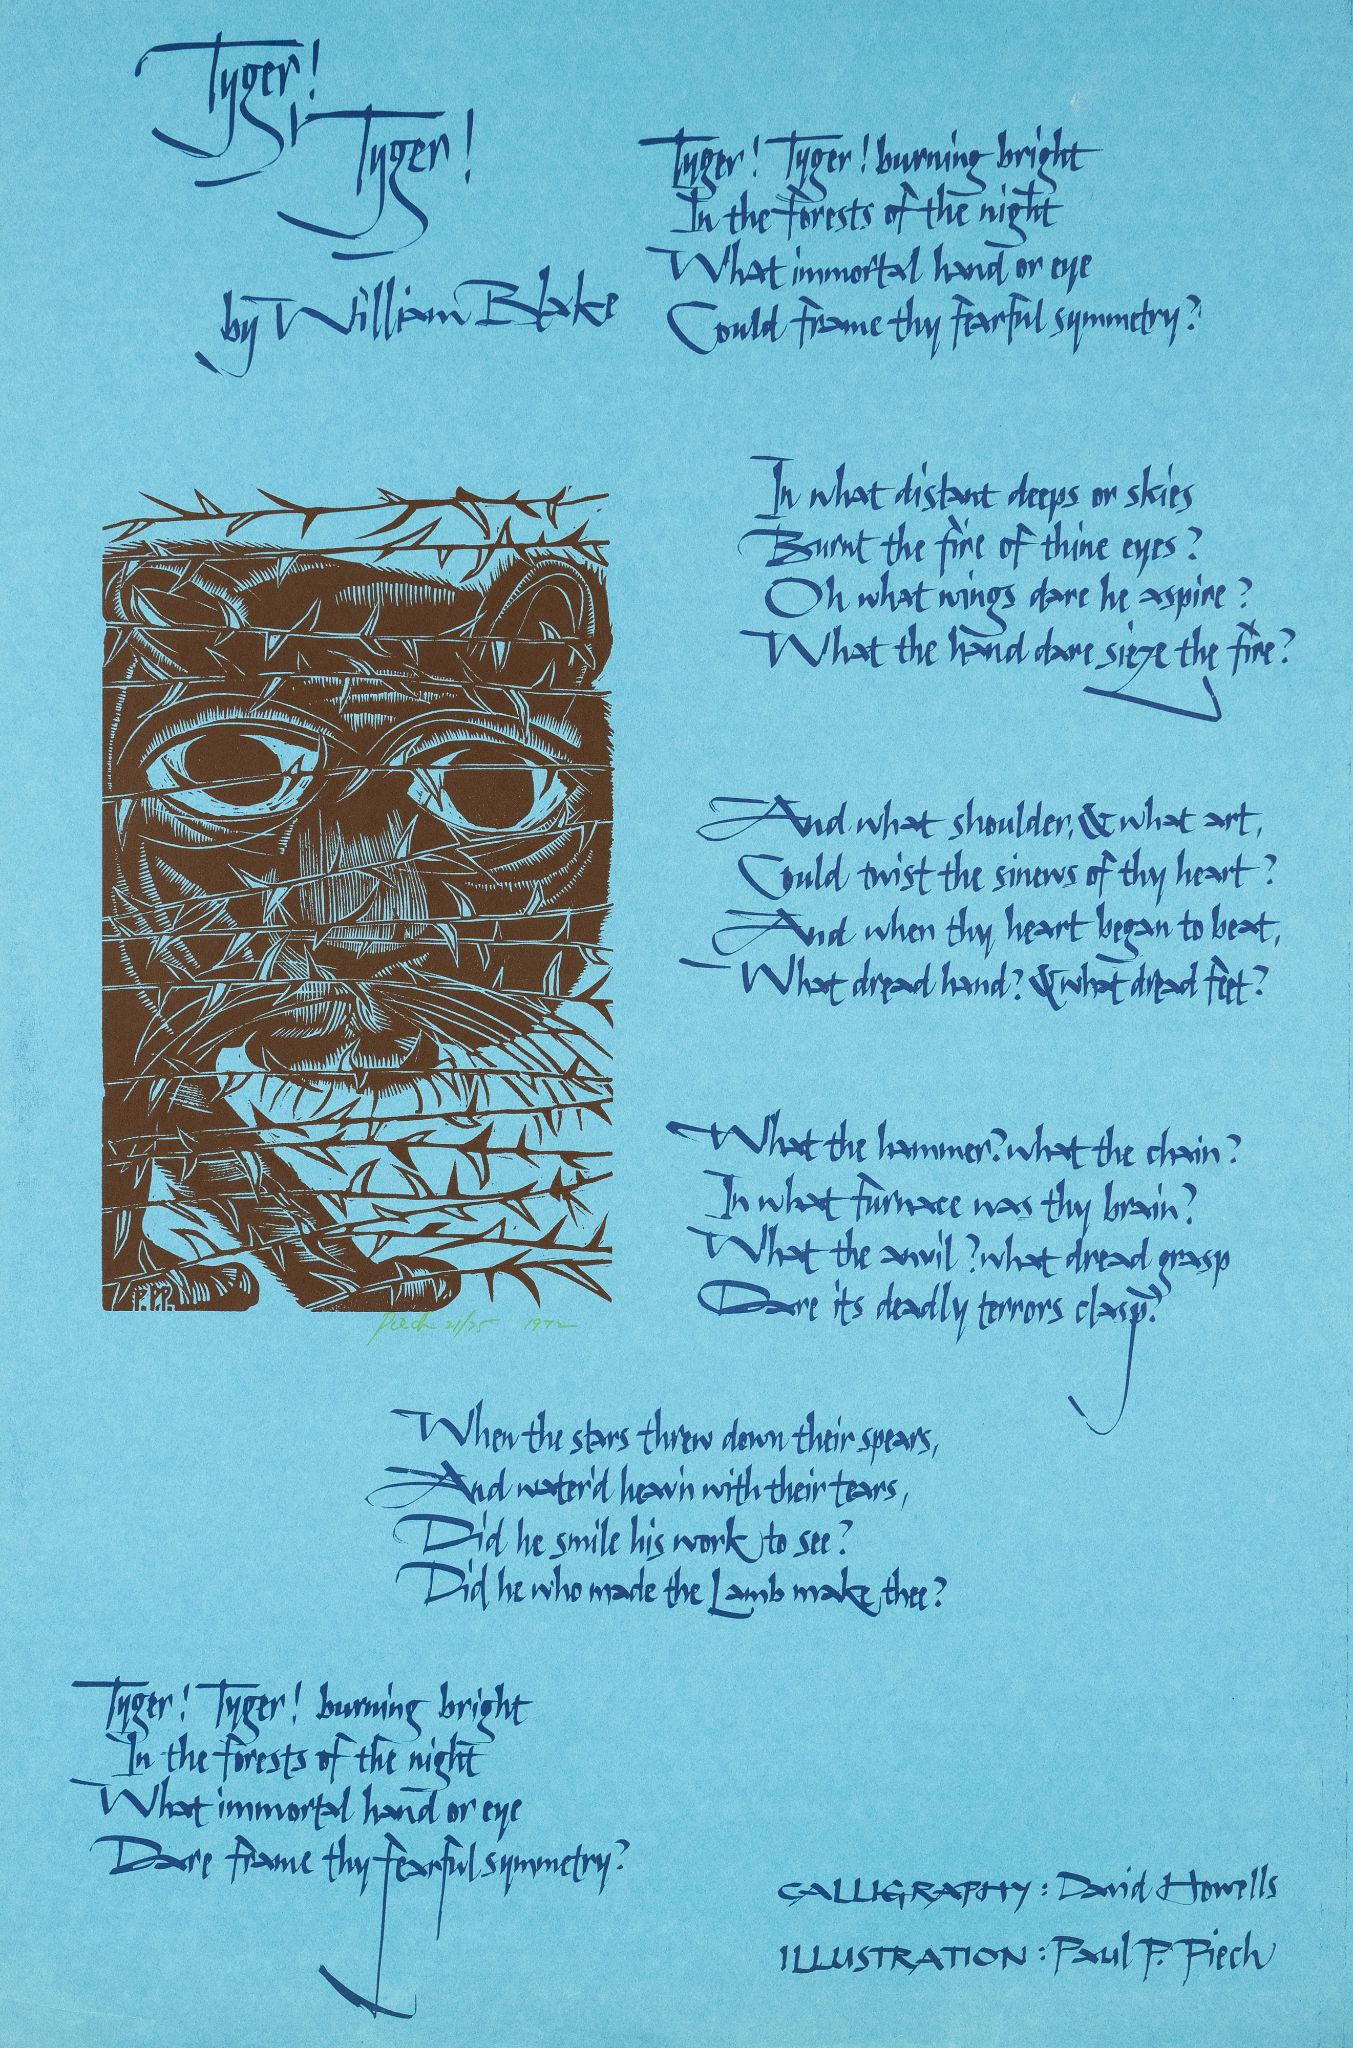 Tyger!
Tyger!
by William Blake
Tyger! Tyger! burning bright
In the forests of the night
What immortal hand or eye
Could frame thy fearful symmetry?
In what distant deeps or skies
Burnt the fire of thine eyes?
Oh what wings dare he aspire?
What the hand dare sieze the fire?
And what shoulder, & what art,
Could twist the sinews of thy heart?
And when thy heart began to beat,
What dread hand? & what dread feet?
What the hammer? what the chain?
In what furnace was thy brain?
What the anvil? what dread grasp
Dare its deadly terrors clasp?
P.P.P.
Piech 21/25 1972
When the stars threw down their spears,
And water'd heav'n with their tears,
Did he smile his work to see?
Did he who made the Lamb make thee?
Tyger! Tyger! burning bright
In the forests of the night
What immortal hand or eye
Dare frame thy fearful symmetry?
CALLIGRAPHY: David Howells
ILLUSTRATION: Paul P. Piech